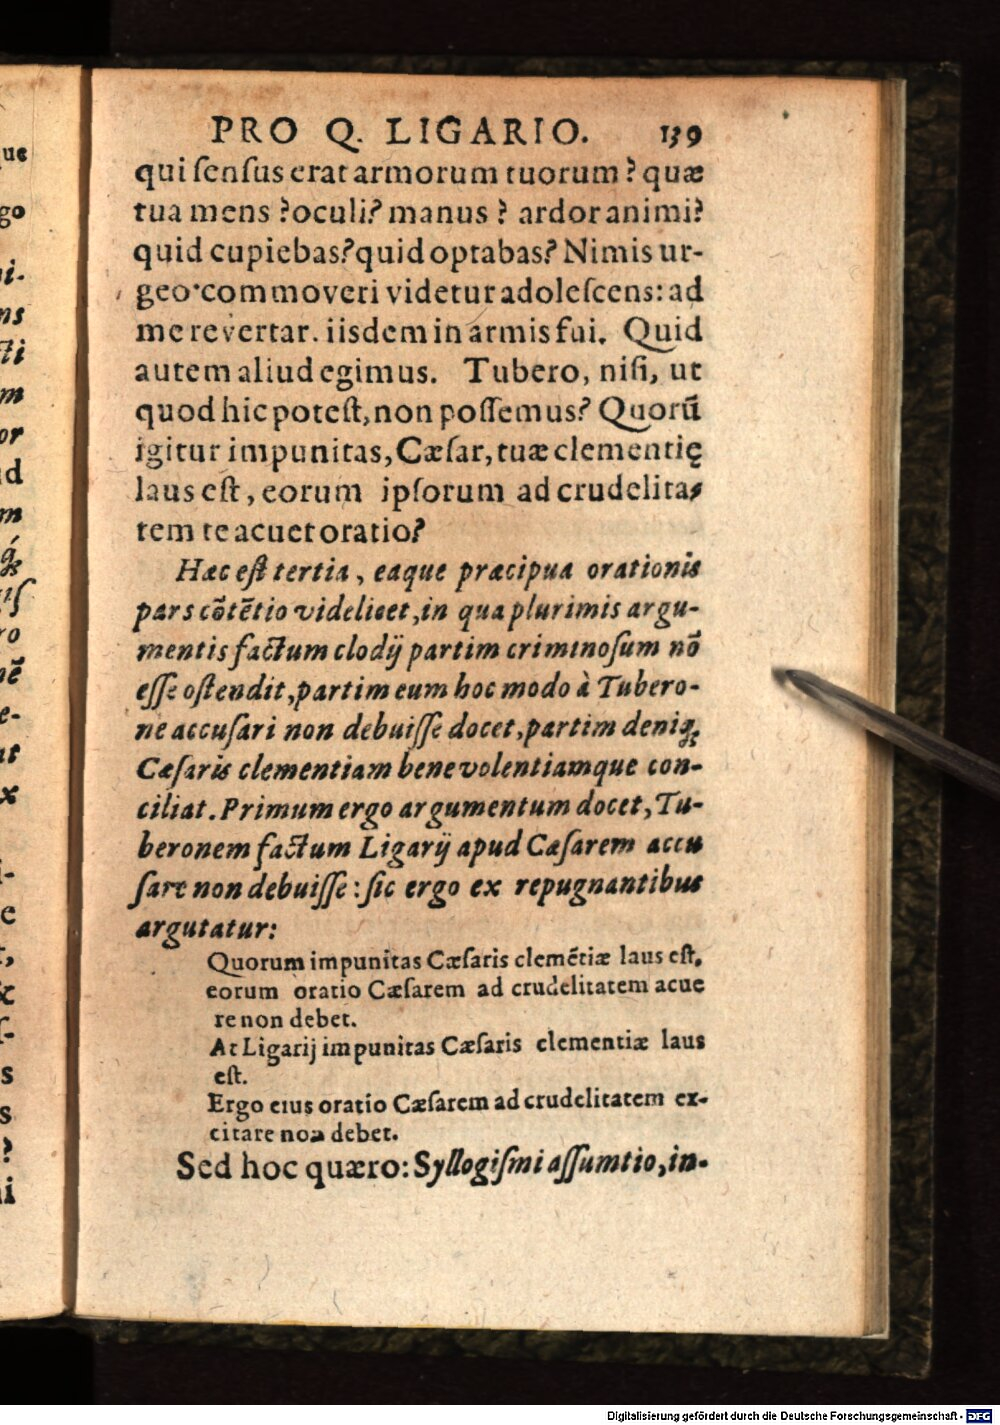 PRO Q. LIGARIO. 139
qui ſenſus erat armorum tuorum? quæ
tua mens? oculi? manus? ardor animi?
quid cupiebas? quid optabas? Nimis ur-
geo· commoveri videtur adoleſcens: ad
me revertar. iisdem in armis fui. Quid
autem aliud egimus. Tubero, niſi, ut
quod hic poteſt, non poſſemus? Quorū
igitur impunitas, Cæſar, tuæ clementię
laus eſt, eorum ipſorum ad crudelita-
tem te acuet oratio?
Hæc eſt tertia, eaque præcipua orationis
pars cōtētio videlicet, in qua plurimis argu-
mentis factum clodij partim criminoſum nō
eſſe oſtendit, partim eum hoc modo à Tubero-
ne accuſari non debuiſſe docet, partim deniq́;
Cæſaris clementiam benevolentiamque con-
ciliat. Primum ergo argumentum docet, Tu-
beronem factum Ligarij apud Cæſarem accu
ſare non debuiſſe: ſic ergo ex repugnantibus
argutatur:
Quorum impunitas Cæſaris clemētiæ laus eſt,
eorum oratio Cæſarem ad crudelitatem acue
re non debet.
At Ligarij impunitas Cæſaris clementiæ laus
eſt.
Ergo eius oratio Cæſarem ad crudelitatem ex-
citare non debet.
Sed hoc quæro: Syllogiſmi aſſumtio, in-
Digitalisierung gefördert durch die Deutsche Forschungsgemeinschaft - DFG